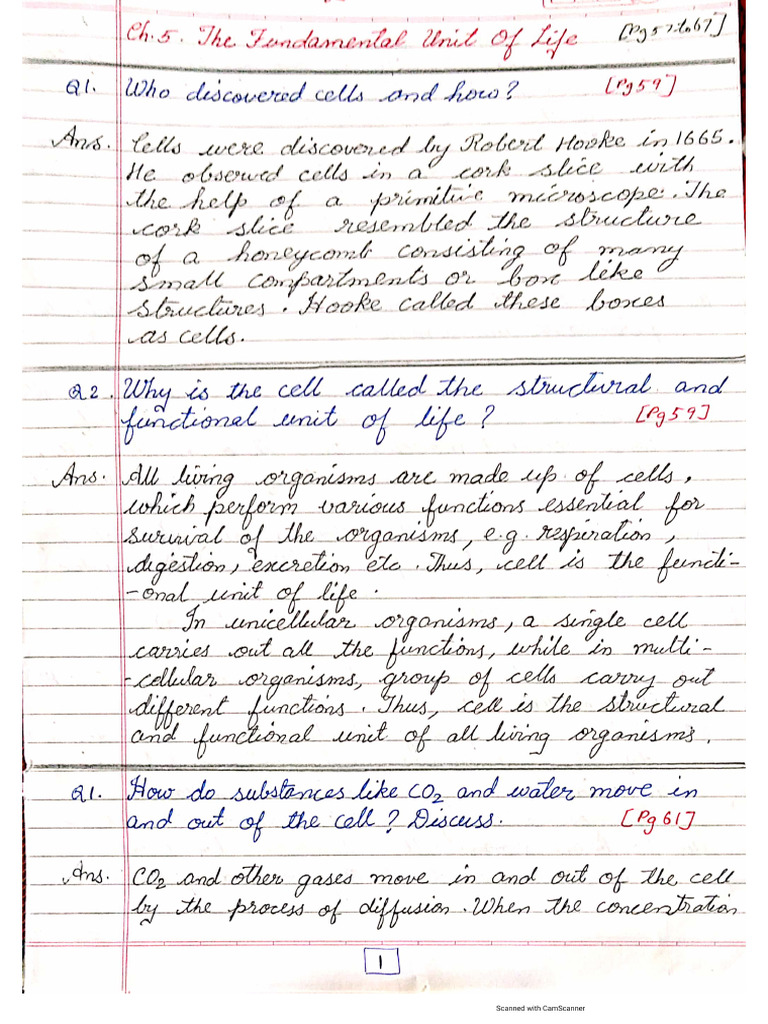 Ch.5. The Fundamental Unit Of Life [Pg 57 to 67]
Q1. Who discovered cells and how? [Pg 59]
Ans. Cells were discovered by Robert Hooke in 1665.
He observed cells in a cork slice with
the help of a primitive microscope. The
cork slice resembled the structure
of a honeycomb consisting of many
small compartments or box like
structures. Hooke called these boxes
as cells.
Q2. Why is the cell called the structural and
functional unit of life? [Pg 59]
Ans. All living organisms are made up of cells,
which perform various functions essential for
survival of the organisms, e.g. respiration,
digestion, excretion etc. Thus, cell is the functi-
-onal unit of life.
In unicellular organisms, a single cell
carries out all the functions, while in multi-
-cellular organisms, group of cells carry out
different functions. Thus, cell is the structural
and functional unit of all living organisms.
Q1. How do substances like CO2 and water move in
and out of the cell? Discuss. [Pg 61]
Ans. CO2 and other gases move in and out of the cell
by the process of diffusion. When the concentration
1
Scanned with CamScanner